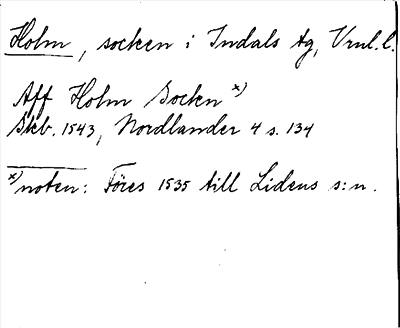 Holm, socken i Indals tg, Vrnl. l.
Aff Holm Socken x)
Skb. 1543, Nordlander 4 s. 134
x) noten: Föres 1535 till Lidens s:n.